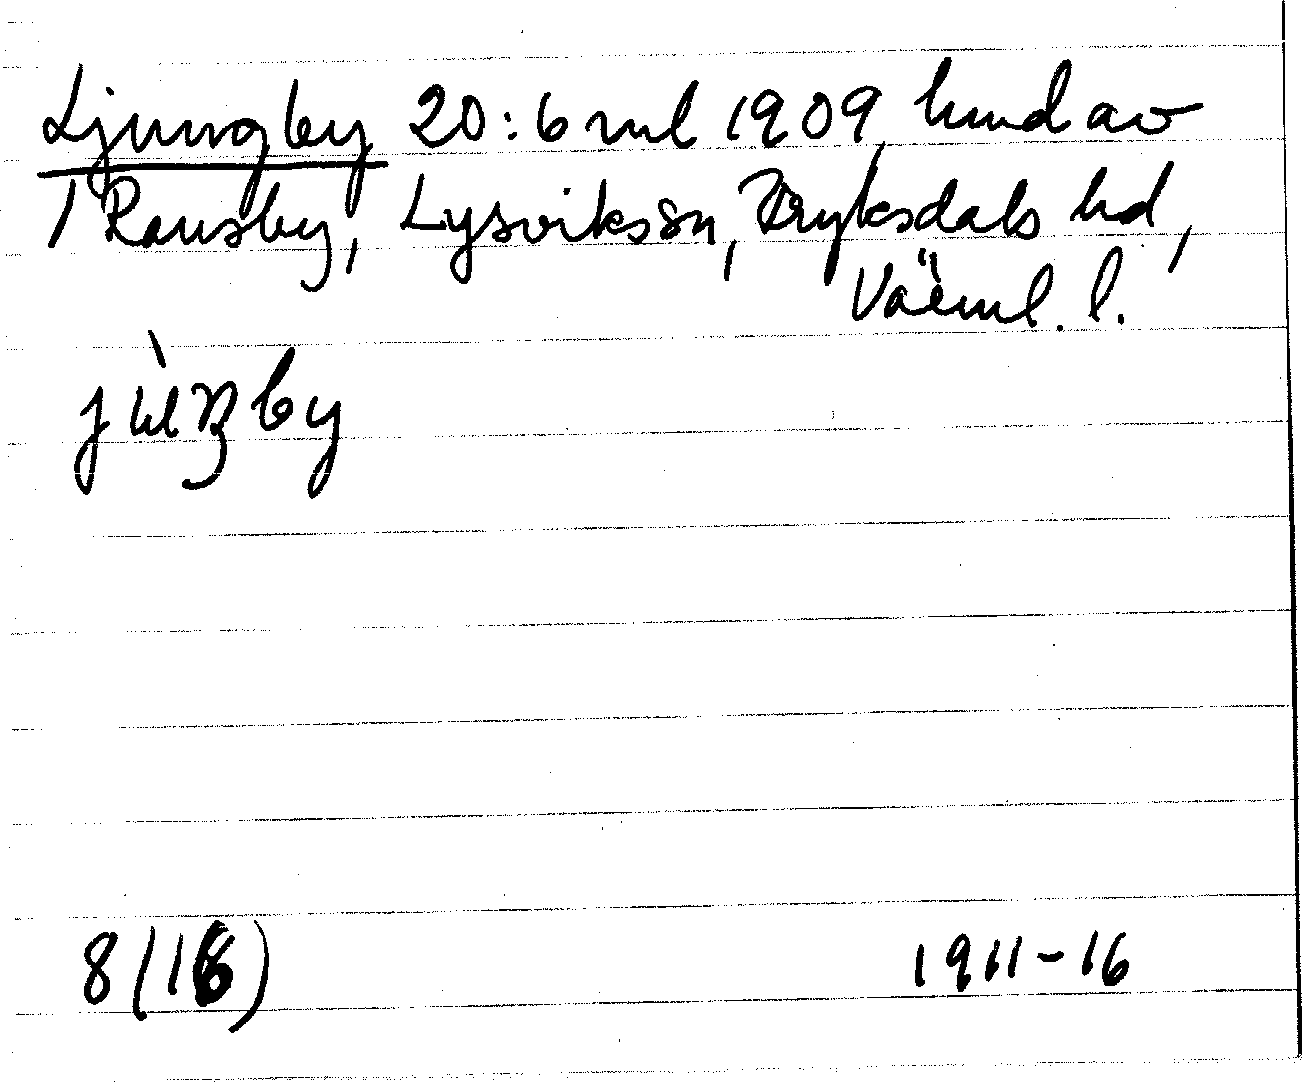 Ljungby 20:6 ml 1909, hmd av
T Ransby, Lysviks sn, Fryksdals hd,
Värml. l.
8 (16)
1911-16